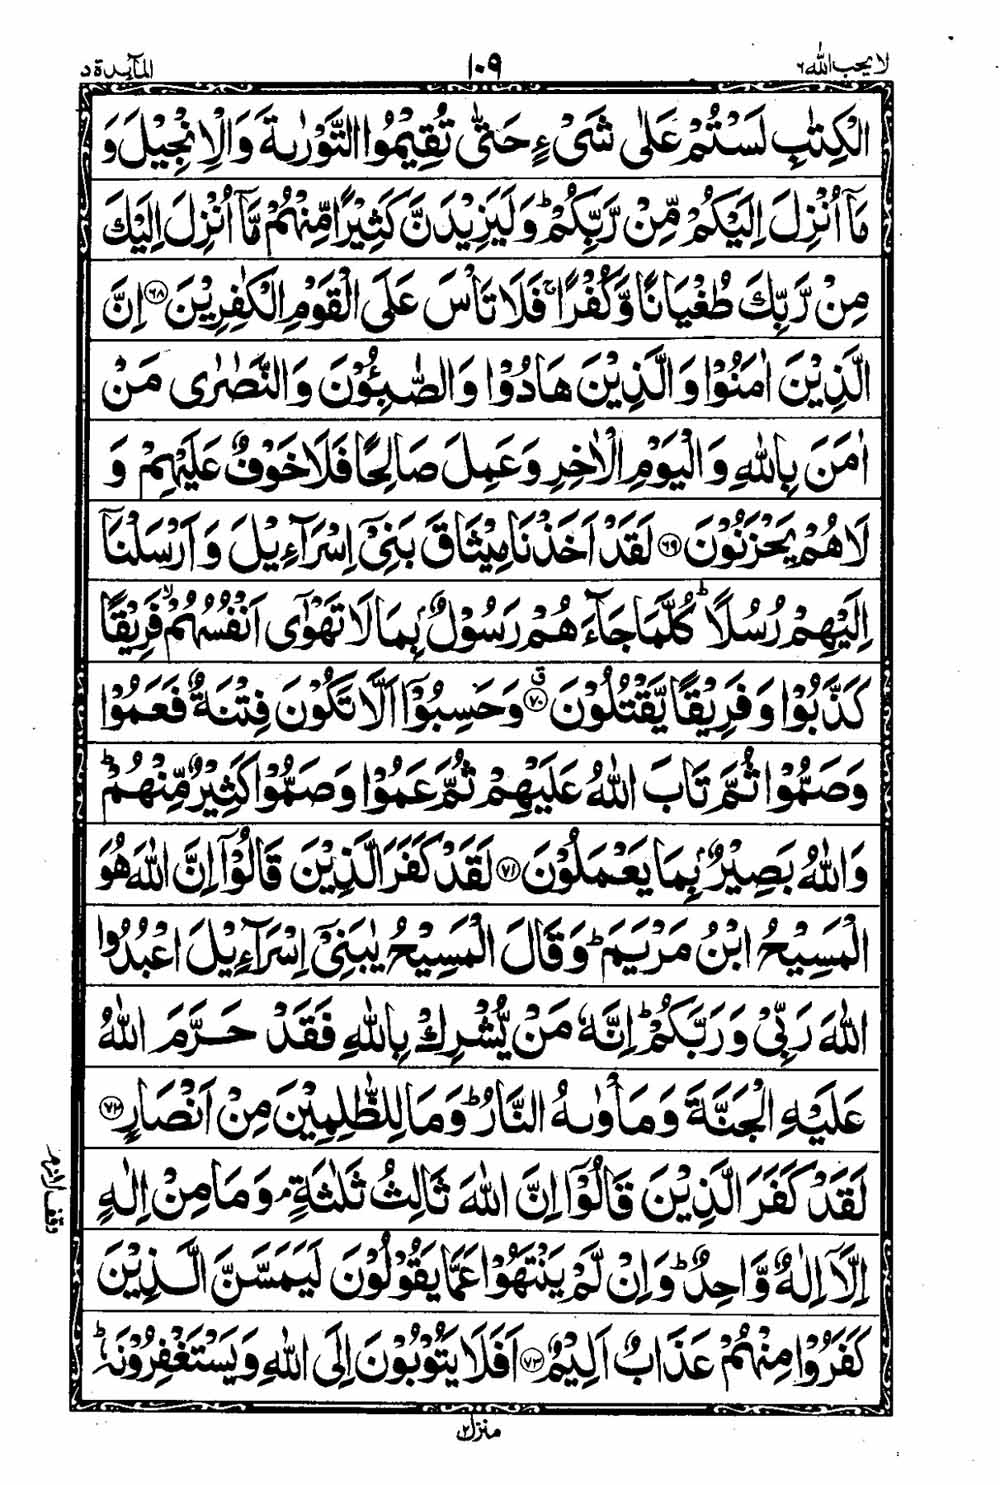 لا يحب الله ٦
١٠٩
المآىٕدة ٥
الْكِتٰبِ لَسْتُمْ عَلٰى شَىْءٍ حَتّٰى تُقِيْمُوا التَّوْرٰىةَ وَالْاِنْجِيْلَ وَ
مَآ اُنْزِلَ اِلَيْكُمْ مِّنْ رَّبِّكُمْ ؕ وَلَيَزِيْدَنَّ كَثِيْرًا مِّنْهُمْ مَّآ اُنْزِلَ اِلَيْكَ
مِنْ رَّبِّكَ طُغْيَانًا وَّكُفْرًا ۚ فَلَا تَاْسَ عَلَى الْقَوْمِ الْكٰفِرِيْنَ ﴿٦٨﴾ اِنَّ
الَّذِيْنَ اٰمَنُوْا وَالَّذِيْنَ هَادُوْا وَالصّٰبِـُٔوْنَ وَالنَّصٰرٰى مَنْ
اٰمَنَ بِاللّٰهِ وَالْيَوْمِ الْاٰخِرِ وَعَمِلَ صَالِحًا فَلَا خَوْفٌ عَلَيْهِمْ وَ
لَا هُمْ يَحْزَنُوْنَ ﴿٦٩﴾ لَقَدْ اَخَذْنَا مِيْثَاقَ بَنِيْٓ اِسْرَآءِيْلَ وَاَرْسَلْنَآ
اِلَيْهِمْ رُسُلًا ؕ كُلَّمَا جَآءَهُمْ رَسُوْلٌۢ بِمَا لَا تَهْوٰٓى اَنْفُسُهُمْ ۙ فَرِيْقًا
كَذَّبُوْا وَفَرِيْقًا يَّقْتُلُوْنَ ﴿٧٠﴾ ق وَحَسِبُوْٓا اَلَّا تَكُوْنَ فِتْنَةٌ فَعَمُوْا
وَصَمُّوْا ثُمَّ تَابَ اللّٰهُ عَلَيْهِمْ ثُمَّ عَمُوْا وَصَمُّوْا كَثِيْرٌ مِّنْهُمْ ؕ
وَاللّٰهُ بَصِيْرٌۢ بِمَا يَعْمَلُوْنَ ﴿٧١﴾ لَقَدْ كَفَرَ الَّذِيْنَ قَالُوْٓا اِنَّ اللّٰهَ هُوَ
الْمَسِيْحُ ابْنُ مَرْيَمَ ؕ وَقَالَ الْمَسِيْحُ يٰبَنِيْٓ اِسْرَآءِيْلَ اعْبُدُوا
اللّٰهَ رَبِّيْ وَرَبَّكُمْ ؕ اِنَّهٗ مَنْ يُّشْرِكْ بِاللّٰهِ فَقَدْ حَرَّمَ اللّٰهُ
عَلَيْهِ الْجَنَّةَ وَمَاْوٰىهُ النَّارُ ؕ وَمَا لِلظّٰلِمِيْنَ مِنْ اَنْصَارٍ ﴿٧٢﴾
لَقَدْ كَفَرَ الَّذِيْنَ قَالُوْٓا اِنَّ اللّٰهَ ثَالِثُ ثَلٰثَةٍ ۘ وَمَا مِنْ اِلٰهٍ
اِلَّآ اِلٰهٌ وَّاحِدٌ ؕ وَاِنْ لَّمْ يَنْتَهُوْا عَمَّا يَقُوْلُوْنَ لَيَمَسَّنَّ الَّذِيْنَ
كَفَرُوْا مِنْهُمْ عَذَابٌ اَلِيْمٌ ﴿٧٣﴾ اَفَلَا يَتُوْبُوْنَ اِلَى اللّٰهِ وَيَسْتَغْفِرُوْنَهٗ ؕ
وقف لازم
منزل ٢